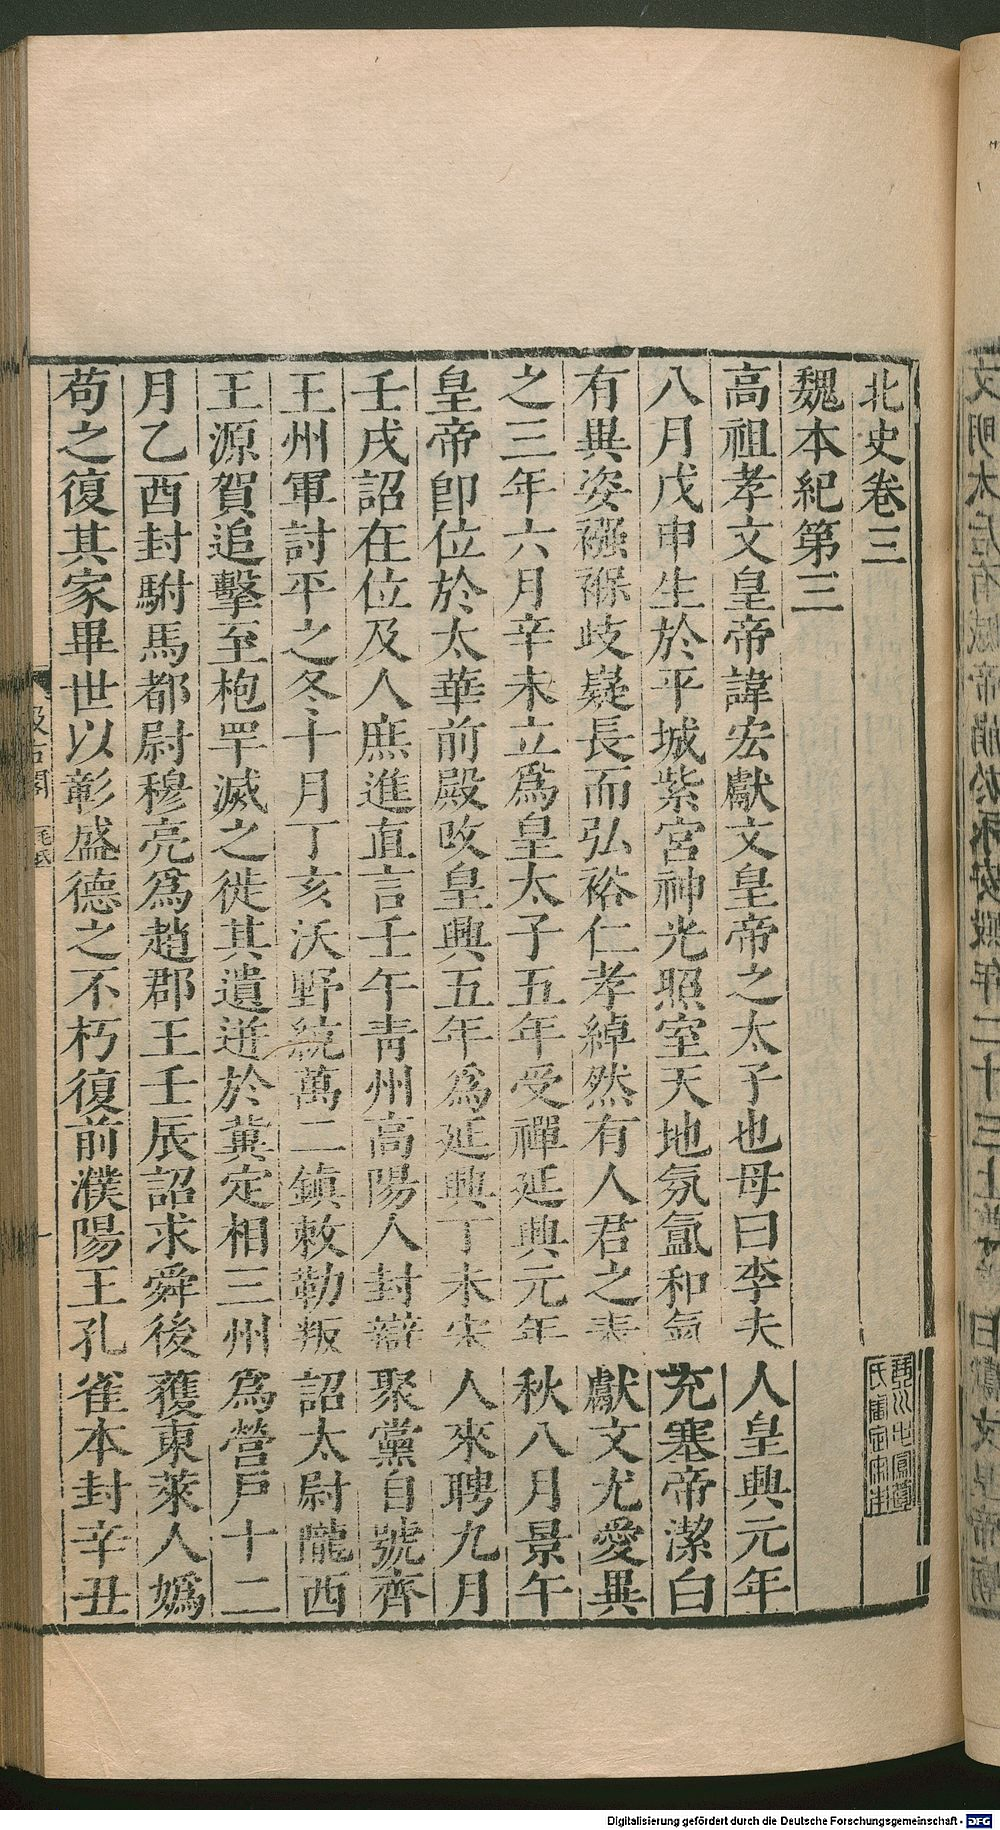 北史卷三
魏本紀第三
高祖孝文皇帝諱宏獻文皇帝之太子也母曰李夫人皇興元年
八月戊申生於平城紫宮神光照室天地氛氳和氣充塞帝潔白
有異姿襁褓岐嶷長而弘裕仁孝綽然有人君之表獻文尤愛異
之三年六月辛未立爲皇太子五年受禪延興元年秋八月景午
皇帝卽位於太華前殿改皇興五年爲延興丁未宋人來聘九月
壬戌詔在位及人庶進直言壬午靑州高陽人封辯聚黨自號齊
王州軍討平之冬十月丁亥沃野統萬二鎮敕勒叛詔太尉隴西
王源賀追擊至枹罕滅之徙其遺迸於冀定相三州爲營戶十二
月乙酉封駙馬都尉穆亮爲趙郡王壬辰詔求舜後獲東萊人嬀
苟之復其家畢世以彰盛德之不朽復前濮陽王孔雀本封辛丑
汲古閣
毛氏
Digitalisierung gefördert durch die Deutsche Forschungsgemeinschaft - DFG